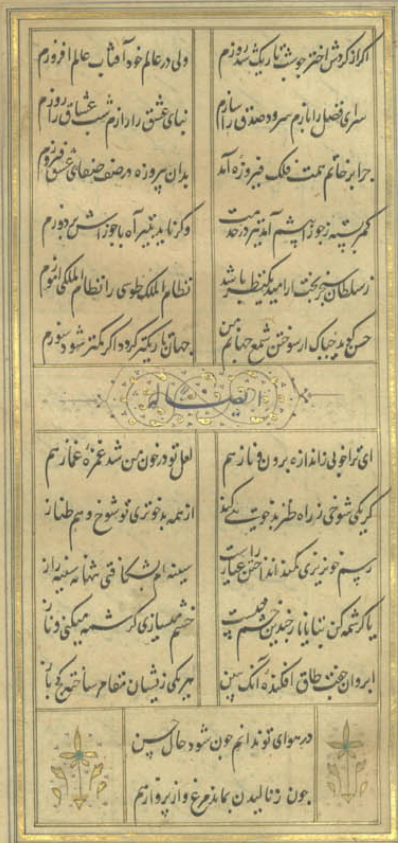 اکر از کردش اختر جو شب تاریک شد روزم
ولی در عالم خود آفتاب عالم افروزم
سرای فضل را بازم سرود صدق را سازم
نبای عشق را رازم شب عشاق را روزم
جرا بر خاتم همت فلک فیروزه آمد
بدان پیروزه در صف صفهای عشق فیروزم
کمر بسته ز جوزا پیشم آمد تیر در خدمت
وکر ناید بتیر آه با جوزاش بردوزم
ز سلطان سنجر بخت را امید یکنظر باشد
نظام الملک طوسی را نظام الملکی آموزم
حسن کوید جه باک ار سوختن شمع جهانم من
جهان تاریکتر کردد اکر یکتر شود سوزم
ایضا له
ای ترا خوبی ز اندازه برون و ناز هم
لعل تو در خون من شد غمزه غماز هم
کر یکی شوخی ز راه طنز بدخویت کند
از همه بدخوتری تو شوخ و هم طناز
رسم خونریزی نکند انداختن
سینه ام بشکافتی تنها نه سینه راز
یا کرشمه کن بتا یا ناز جندین خشم جیست
خشم میسازی کرشمه میکنی و ناز
ابروان جفت طاق افکنده آنک ببین
هر یکی زیشان مقامر ساخته کج باز
در هوای تو ندانم جون شود حال حسن
جون ز نالیدن بماند مرغ و از پرواز هم